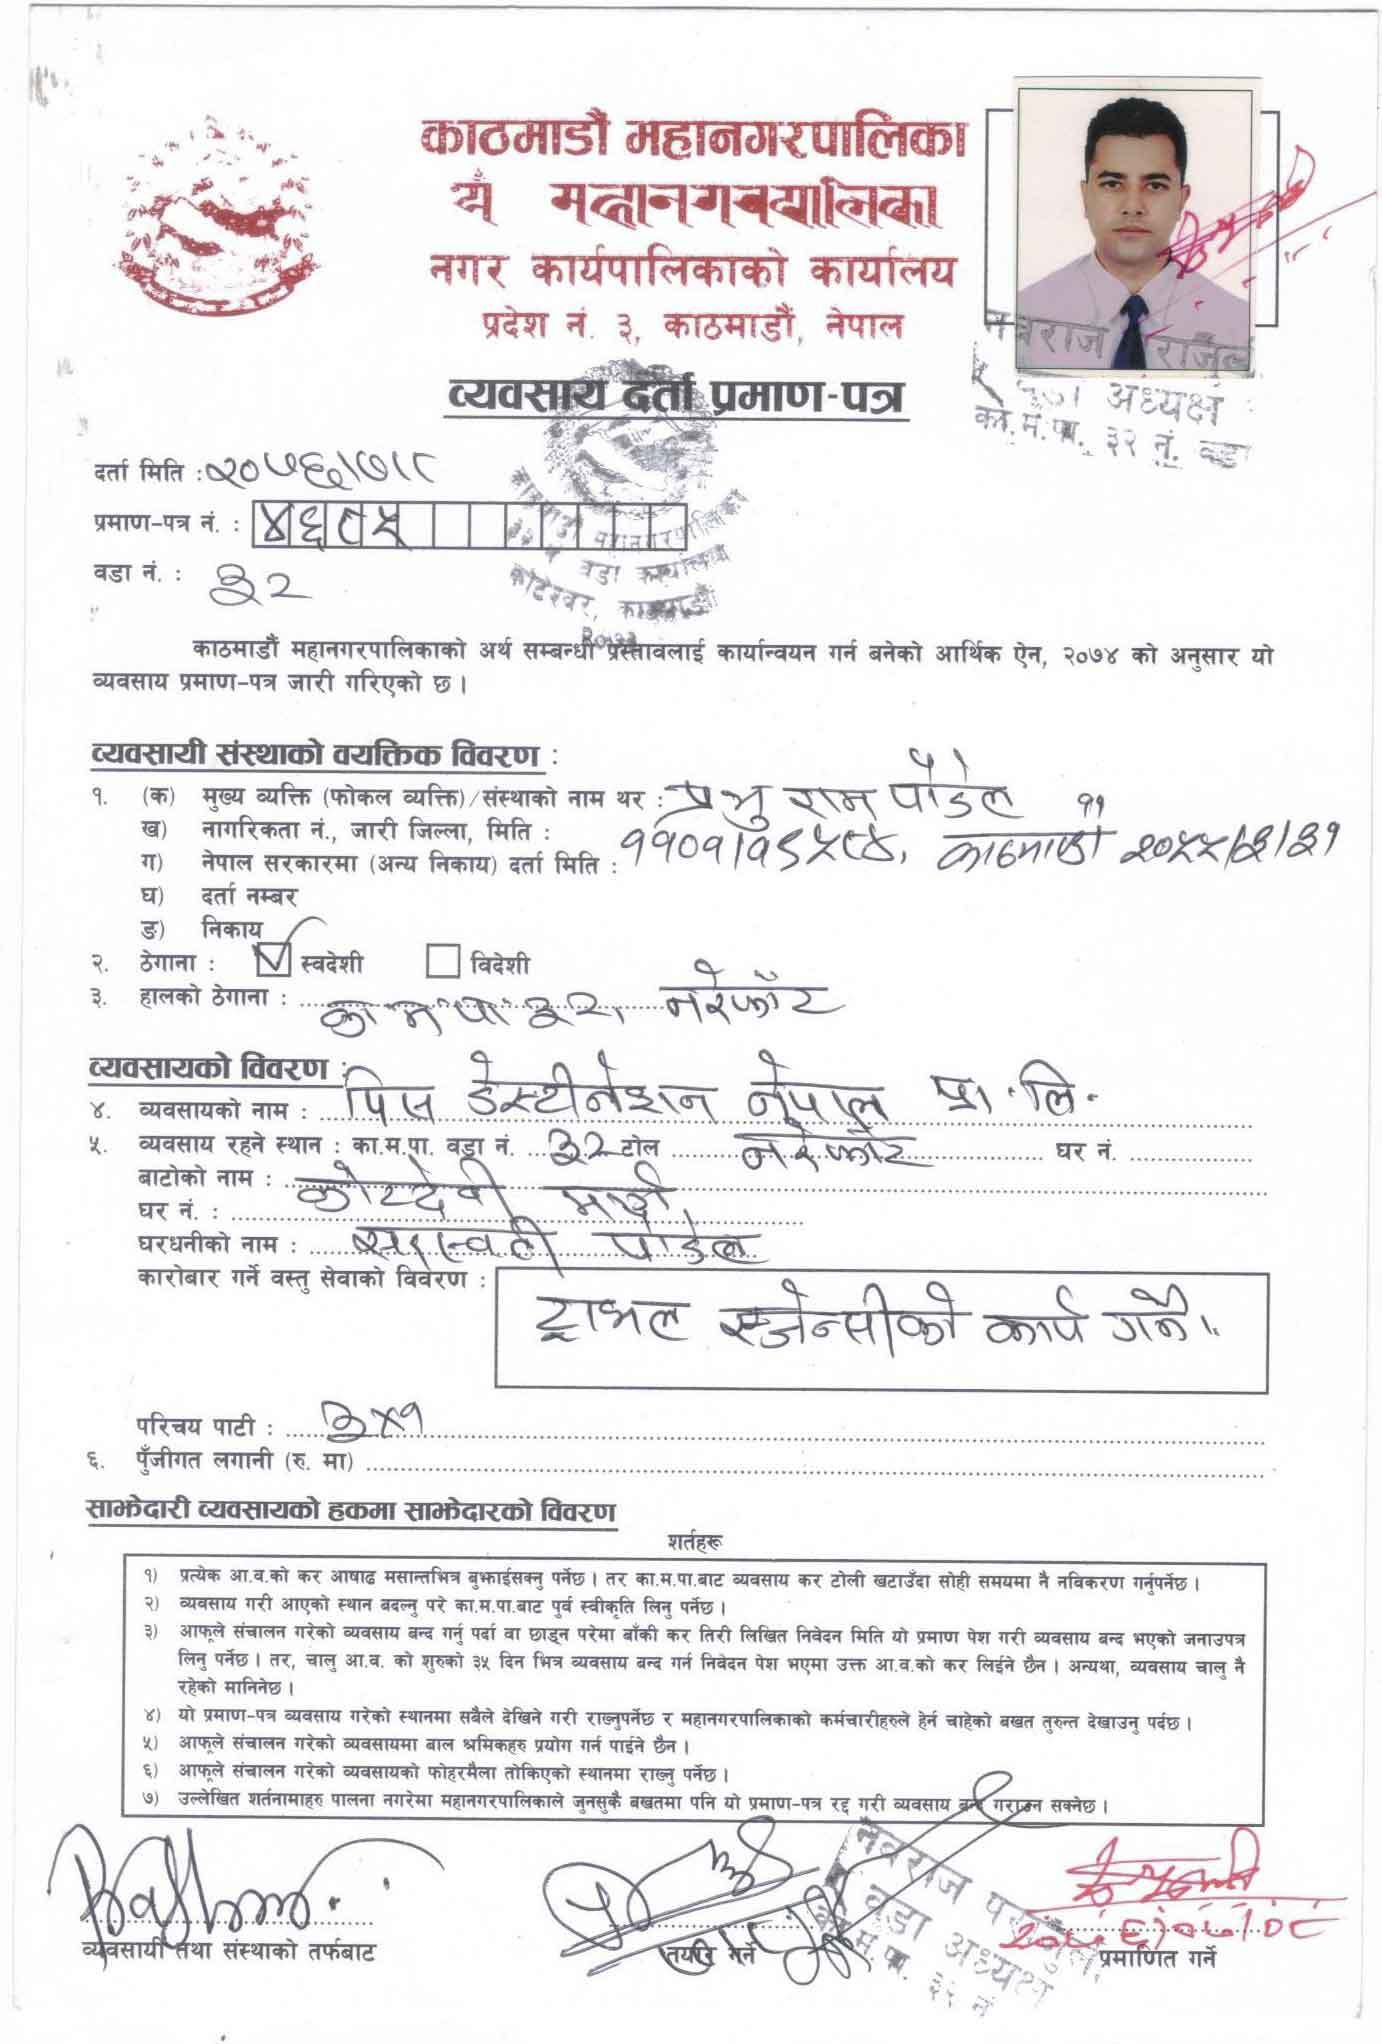 काठमाडौं महानगरपालिका
यँ महानगरपालिका
नगर कार्यपालिकाको कार्यालय
प्रदेश नं. ३, काठमाडौं, नेपाल
व्यवसाय दर्ता प्रमाण-पत्र
वडा अध्यक्ष
का.म.पा. ३२ नं. वडा
दर्ता मिति : २०७६।७।८
प्रमाण-पत्र नं. : ४६८५
वडा नं. : ३२
काठमाडौं महानगरपालिका
३२ नं वडा कार्यालय
कोटेश्वर, काठमाडौं
२०७३
काठमाडौं महानगरपालिकाको अर्थ सम्बन्धी प्रस्तावलाई कार्यान्वयन गर्न बनेको आर्थिक ऐन, २०७४ को अनुसार यो
व्यवसाय प्रमाण-पत्र जारी गरिएको छ ।
व्यवसायी संस्थाको वयक्तिक विवरण :
१. (क) मुख्य व्यक्ति (फोकल व्यक्ति)/संस्थाको नाम थर : प्रभु राम पौडेल
ख) नागरिकता नं., जारी जिल्ला, मिति :
ग) नेपाल सरकारमा (अन्य निकाय) दर्ता मिति : काठमाडौं
घ) दर्ता नम्बर
ङ) निकाय
२. ठेगाना : स्वदेशी विदेशी
३. हालको ठेगाना : का म पा ३२, नरेफाँट
व्यवसायको विवरण :
४. व्यवसायको नाम : पिस डेस्टीनेशन नेपाल प्रा.लि.
५. व्यवसाय रहने स्थान : का.म.पा. वडा नं. ३२ टोल नरेफाँट घर नं.
बाटोको नाम : कोटदेवी मार्ग
घर नं. :
घरधनीको नाम : सरस्वती पौडेल
कारोबार गर्ने वस्तु सेवाको विवरण :
ट्राभल एजेन्सीको कार्य गर्ने ।
परिचय पाटी : ३x१
६. पुँजीगत लगानी (रु. मा)
साझेदारी व्यवसायको हकमा साझेदारको विवरण
शर्तहरू
१) प्रत्येक आ.व.को कर आषाढ मसान्तभित्र बुझाईसक्नु पर्नेछ । तर का.म.पा.बाट व्यवसाय कर टोली खटाउँदा सोही समयमा नै नविकरण गर्नुपर्नेछ ।
२) व्यवसाय गरी आएको स्थान बदल्नु परे का.म.पा.बाट पुर्व स्वीकृति लिनु पर्नेछ ।
३) आफूले संचालन गरेको व्यवसाय बन्द गर्नु पर्दा वा छाड्न परेमा बाँकी कर तिरी लिखित निवेदन मिति यो प्रमाण पेश गरी व्यवसाय बन्द भएको जनाउपत्र
लिनु पर्नेछ । तर, चालु आ.व. को शुरुको ३५ दिन भित्र व्यवसाय बन्द गर्न निवेदन पेश भएमा उक्त आ.व.को कर लिईने छैन । अन्यथा, व्यवसाय चालु नै
रहेको मानिनेछ ।
४) यो प्रमाण-पत्र व्यवसाय गरेको स्थानमा सबैले देखिने गरी राख्नुपर्नेछ र महानगरपालिकाको कर्मचारीहरुले हेर्न चाहेको बखत तुरुन्त देखाउनु पर्दछ ।
५) आफूले संचालन गरेको व्यवसायमा बाल श्रमिकहरु प्रयोग गर्न पाईने छैन ।
६) आफूले संचालन गरेको व्यवसायको फोहरमैला तोकिएको स्थानमा राख्नु पर्नेछ ।
७) उल्लेखित शर्तनामाहरु पालना नगरेमा महानगरपालिकाले जुनसुकै बखतमा पनि यो प्रमाण-पत्र रद्द गरी व्यवसाय बन्द गराउन सक्नेछ ।
वडा अध्यक्ष
व्यवसायी तथा संस्थाको तर्फबाट
तयार गर्ने
प्रमाणित गर्ने